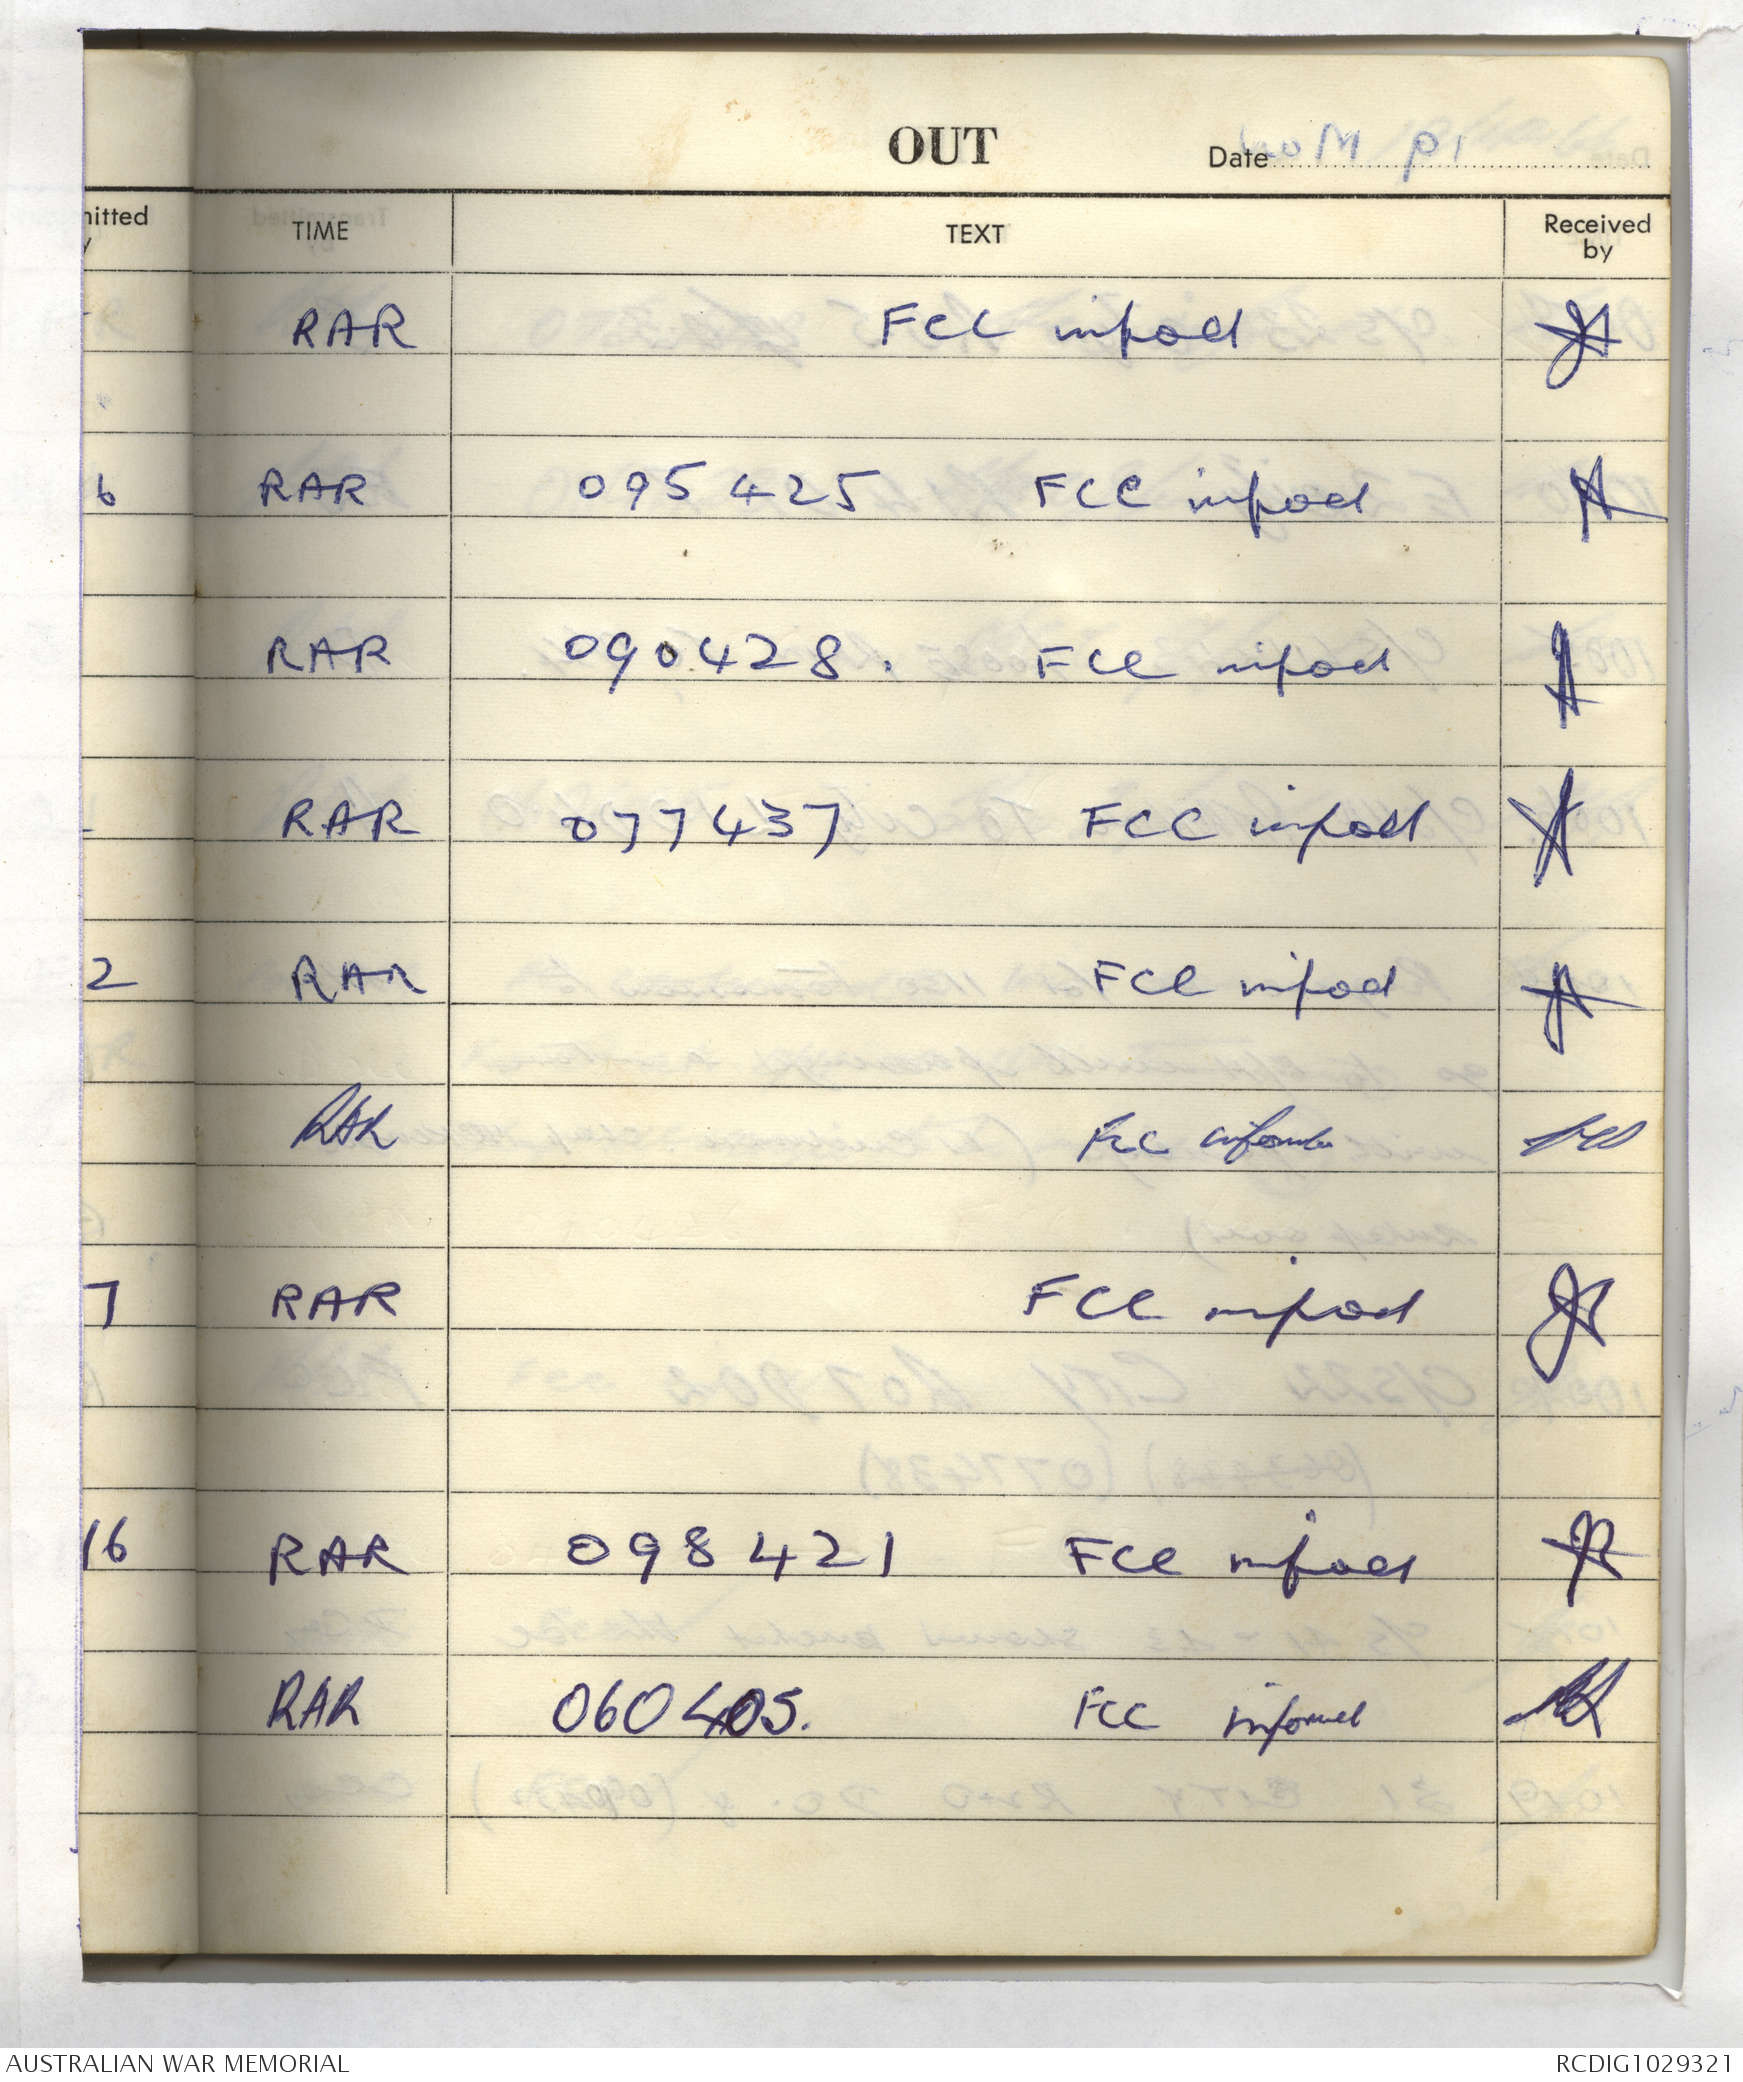 OUT
Date
TIME TEXT Received by
RAR FCC infod
6 RAR 095425 FCC infod
RAR 090428. FCC infod
RAR 077437 FCC infod
2 RAR FCC infod
RAR FCC informed
7 RAR FCC infod
16 RAR 098421 FCC infod
RAR 060405. FCC informed
AUSTRALIAN WAR MEMORIAL RCDIG1029321